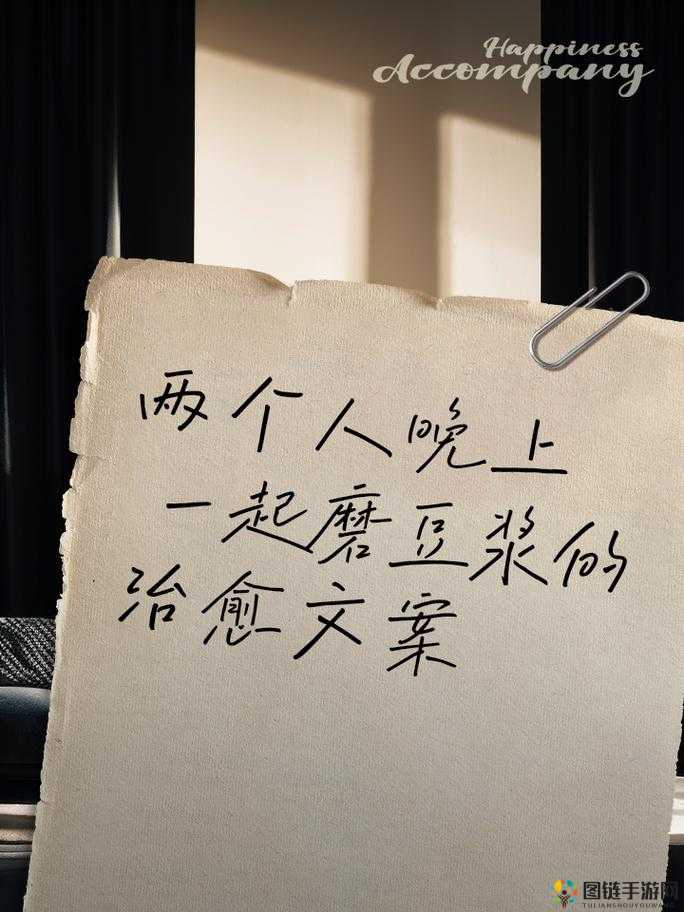 Happiness
Accompany
两个人晚上
一起磨豆浆的
治愈文案
图链手游网
TULIANSHOUYOUWANG